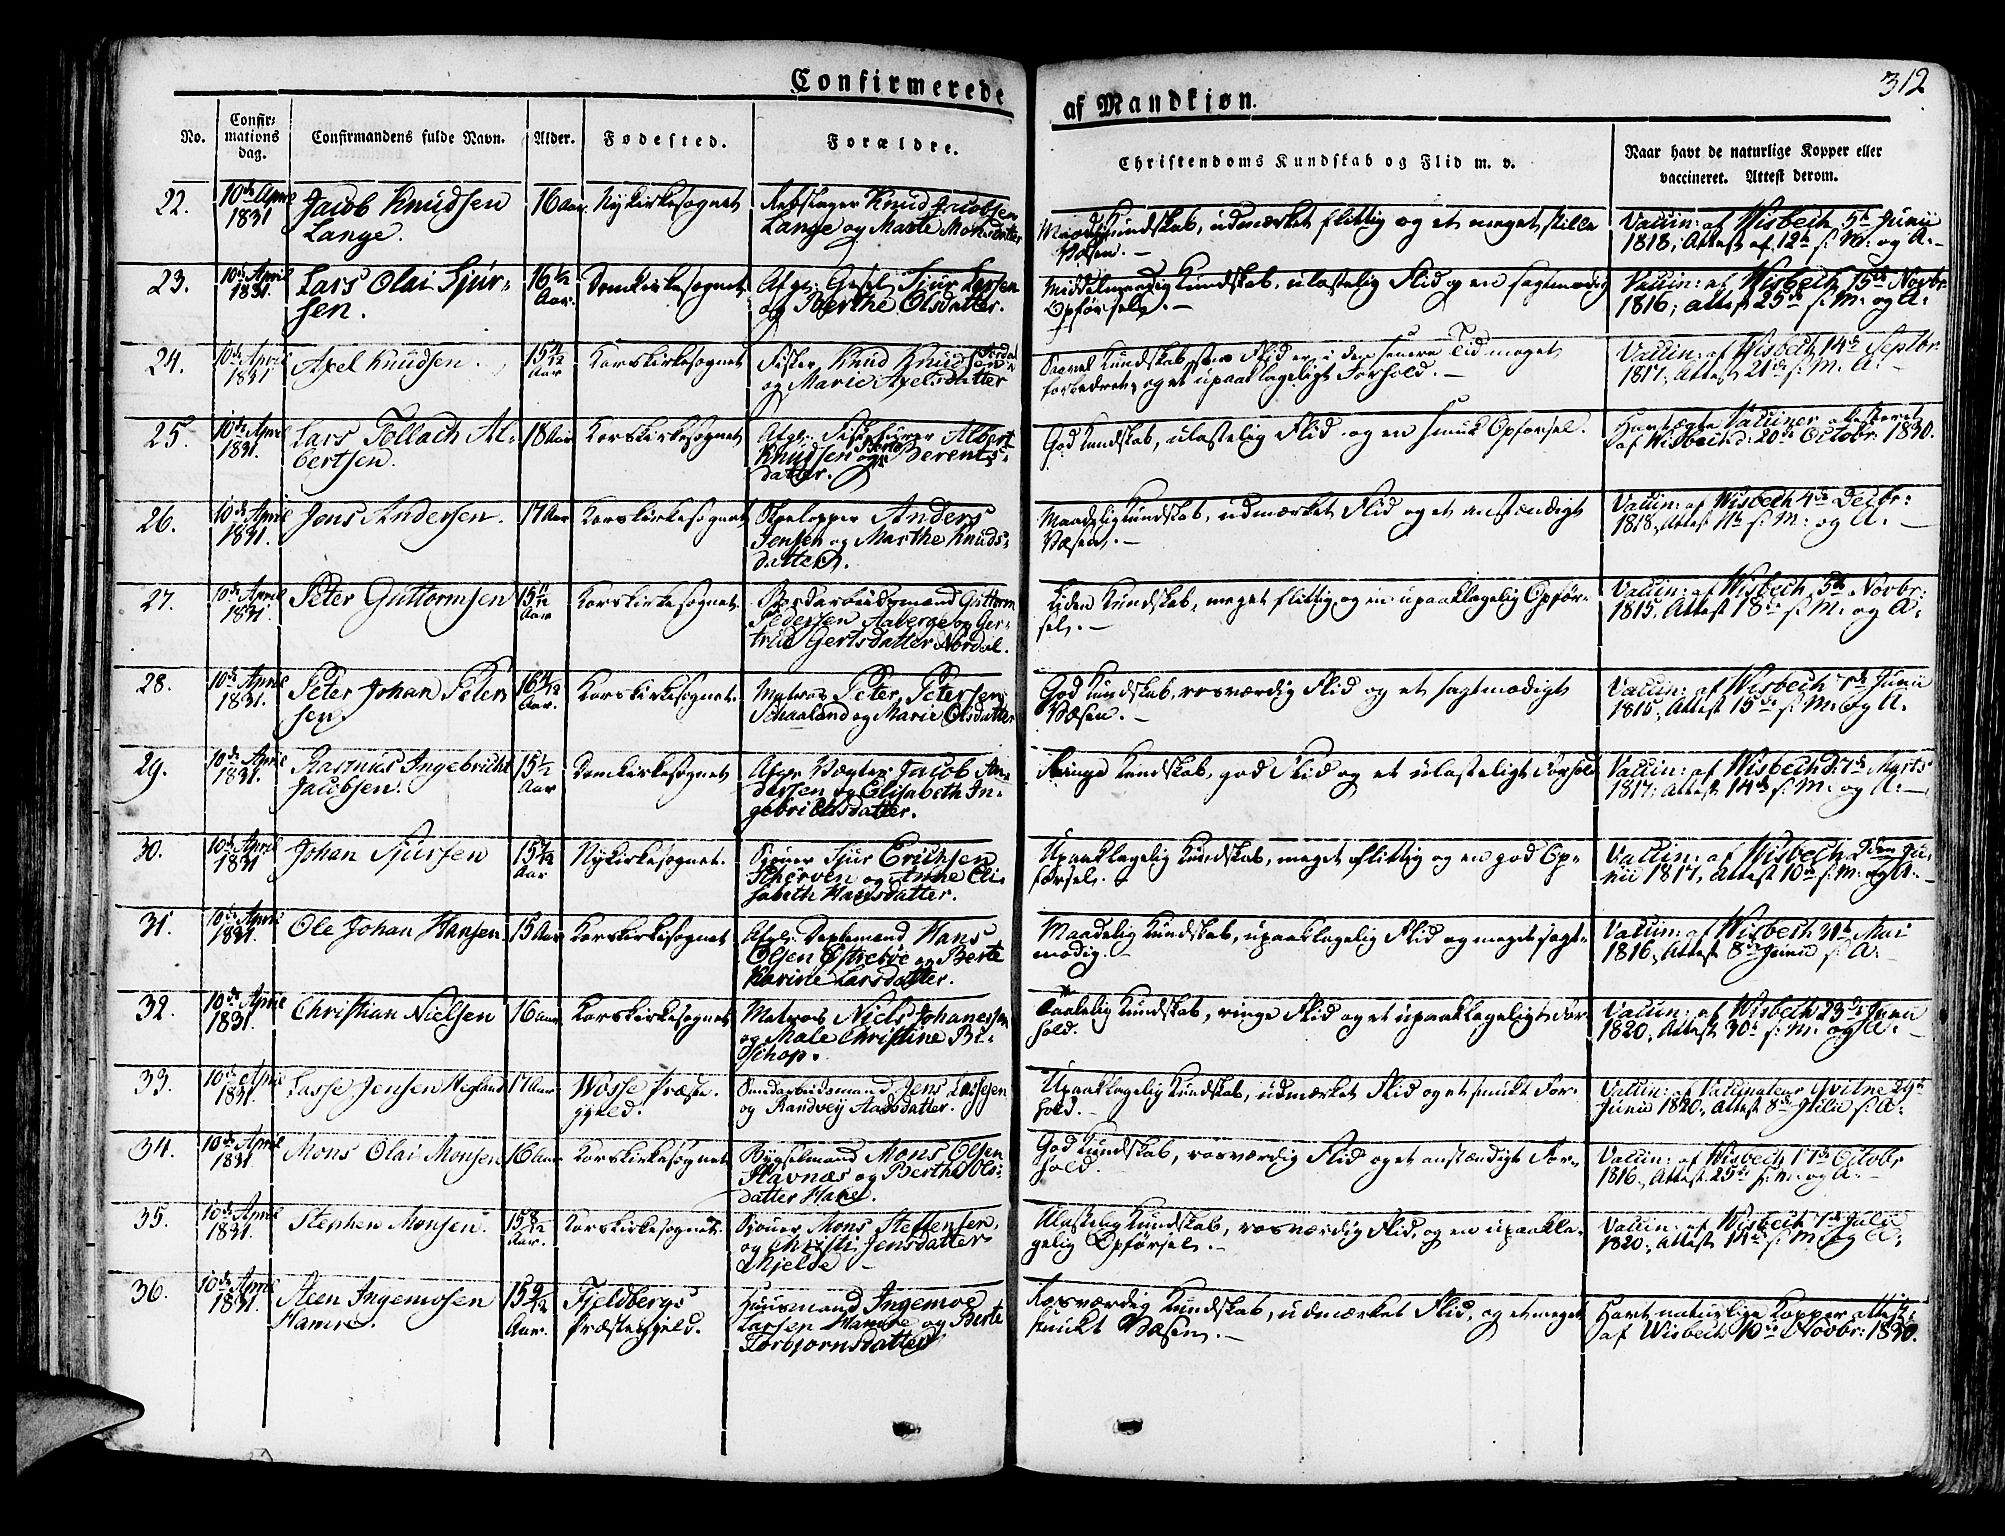 Confirmerede
af Mandkjøn.
312
No.
Confir-
mations
dag.
Confirmandens fulde Navn.
Alder.
Fødested.
Forældre.
Christendoms Kundskab og Flid m. v.
Naar havt de naturlige Kopper eller
vaccineret. Attest derom.
22.
10de April
1831
Jacob Knudsen
Lange.
16 Aar
Nykirkesognet
Rebslager Knud Jacobsen
Lange og Marte Monsdatter
Maadelig Kundskab, udmærket flittig og et meget stille
Væsen. -
Vaccin: af Wisbech 5te Junii
1818; Attest af 12te s: M. og A: -
23.
10de April
1831.
Lars Olai Sjur-
sen.
16 1/2
Aar.
Domkirkesognet
Afg: Gesel Sjur Larsen
og Berthe Olsdatter.
Middelmaadig Kundskab, ulastelig Flid og en sagtmodig
Opførsel. -
Vaccin: af Wisbech 15de Novbr
1816; Attest 25de s: M: og A: -
24.
10de April
1831
Axel Knudsen.
15
Aar
Korskirkesognet
Fisker Knud Knudsen
og Marie Axelsdatter
Kundskab, Flid er i den senere Tid meget
forbedret, og et upaaklageligt Forhold. -
Vaccin: af Wisbech 14de Septbr
1817; Attest 21de s: M. A: -
25.
10de April
1831.
Lars Tollach Al-
bertsen.
18 Aar
Korskirkesognet
Afg: Albert
Knudsen og Berents-
datter.
God Kundskab, ulastelig Flid og en smuk Opførsel.
Havt ægte Vacciner attesteret
af Wisbech d: 20de Octobr: 1830.
26.
10de April
1831.
Jens Andersen.
17 Aar
Korskirkesognet
Anders
Jensen og Marthe Knuds-
datter.
Maadelig Kundskab, udmærket Flid og et anstændigt
Væsen. -
Vaccin: af Wisbech 4de Decbr:
1818; Attest 11te s: M: og A: -
27.
10de April
1831.
Peter Guttormsen
15 11/12
Aar
Korskirkesognet
Guttorm
Pedersen Aaberge og Ger-
trud Gertsdatter Nordal.
Liden Kundskab, meget flittig og en upaaklagelig Opfør-
sel. -
Vaccin: af Wisbech 5te Novbr:
1815; Attest 18de s: M: og A:
28.
10de April
1831.
Peter Johan Peter-
sen.
16
Aar.
Korskirkesognet.
Matros Peter Petersen
Schaaland og Marie Olsdatter
God Kundskab, rosværdig Flid og et sagtmodigt
Væsen. -
Vaccin: af Wisbech 7de Junii
1815; Attest 15de s: M: og A:
29.
10de April
1831.
Rasmus Ingebricht
Jacobsen.
15 1/2
Aar
Domkirkesognet
Afg: Vægter Jacob An-
dersen og Elisabeth In-
gebrichtsdatter.
Ringe Kundskab, god Flid og et ulasteligt Forhold
Vaccin: af Wisbech d: 7de Marts
1817; Attest 14de s: M: og A: -
30.
10de April
1831
Johan Sjursen
15
Aar
Nykirkesognet.
Skoer Sjur Erichsen
Scherven og Anne Eli-
sabeth Hansdatter.
Upaaklagelig Kundskab, meget flittig og en god Op-
førsel. -
Vaccin: af Wisbech 2den Ju-
nii 1817, Attest 10de s: M: og A: -
31.
10de April
1831.
Ole Johan Hansen
15 Aar
Korskirkesognet
Afg: Hans
Olsen Østreboe og Berte
Karine Larsdatter.
Maadelig Kundskab, upaaklagelig Flid og meget sagt-
modig. -
Vaccin: af Wisbech 31te Mai
1816; Attest 8de Junii s: A: -
32.
10de April
1831.
Christian Nielsen
16 Aar
Korskirkesognet
Matros Niels Johannessen
og Male Christine Bi-
schop.
Taalelig Kundskab, ringe Flid og et upaaklageligt For-
hold.
Vaccin: af Wisbech 23de Junii
1820; Attest 30te s: M: og A: -
33.
10de April
1831.
Lasse Jensen Hegland
17 Aar
Wosse Præste-
gjeld.
Jens Lassesen
og Randvey Aadsdatter.
Upaaklagelig Kundskab, udmærket Flid og et smukt For-
hold. -
Vaccin: af Vaccinateur Qvitne 29de
Junii 1820; Attest 8de Julii s: A:
34.
10de April
1831.
Mons Olai Monsen
16 Aar
Korskirkesognet
Bygselmand Mons Olsen
Havnæs og Berthe Ols-
datter
God Kundskab, rosværdig Flid og et anstændigt For-
hold.
Vaccin: af Wisbech 17de Octobr
1816; Attest 25de s: M: og A: -
35.
10de April
1831.
Stephen Monsen.
15 8/12
Aar.
Korskirkesognet.
Skoer Mons Steffensen
og Christi Jensdatter
Mjelde -
Ulastelig Kundskab, rosværdig Flid, og en upaakla-
gelig Opførsel. -
Vaccin: af Wisbech 7de Julii
1820; Attest 14de s: M: og A:
36.
10de April
1831.
Steen Ingemosen
Hamre.
15 9/12
Aar.
Fjeldbergs
Præstegjeld.
Huusmand Ingemoe
Larsen Hamre og Berte
Torbjørnsdatter
Rosværdig Kundskab, udmærket Flid, og et meget
smukt Væsen. -
Havt naturlige Kopper attest:
af Wisbech 10de Novbr: 1830.